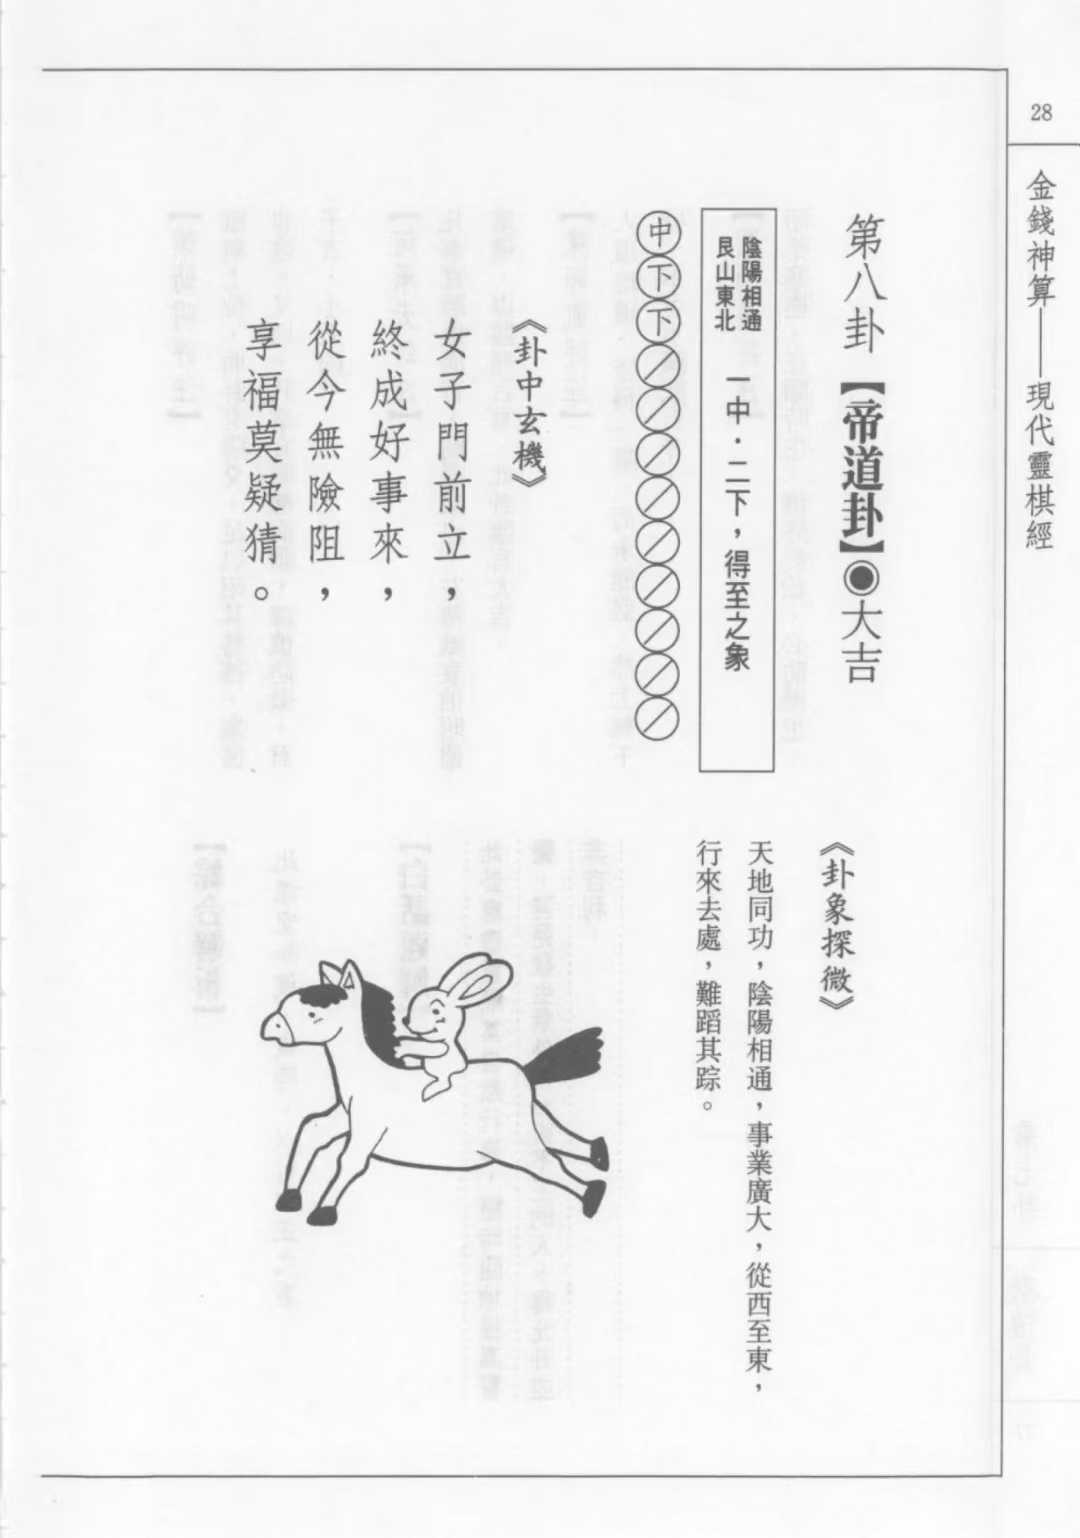 28
金錢神算——現代靈棋經
第八卦【帝道卦】◉大吉
陰陽相通
艮山東北
一中．二下，得至之象
中下下
《卦中玄機》
女子門前立，
終成好事來，
從今無險阻，
享福莫疑猜。
《卦象探微》
天地同功，陰陽相通，事業廣大，從西至東，
行來去處，難蹈其踪。